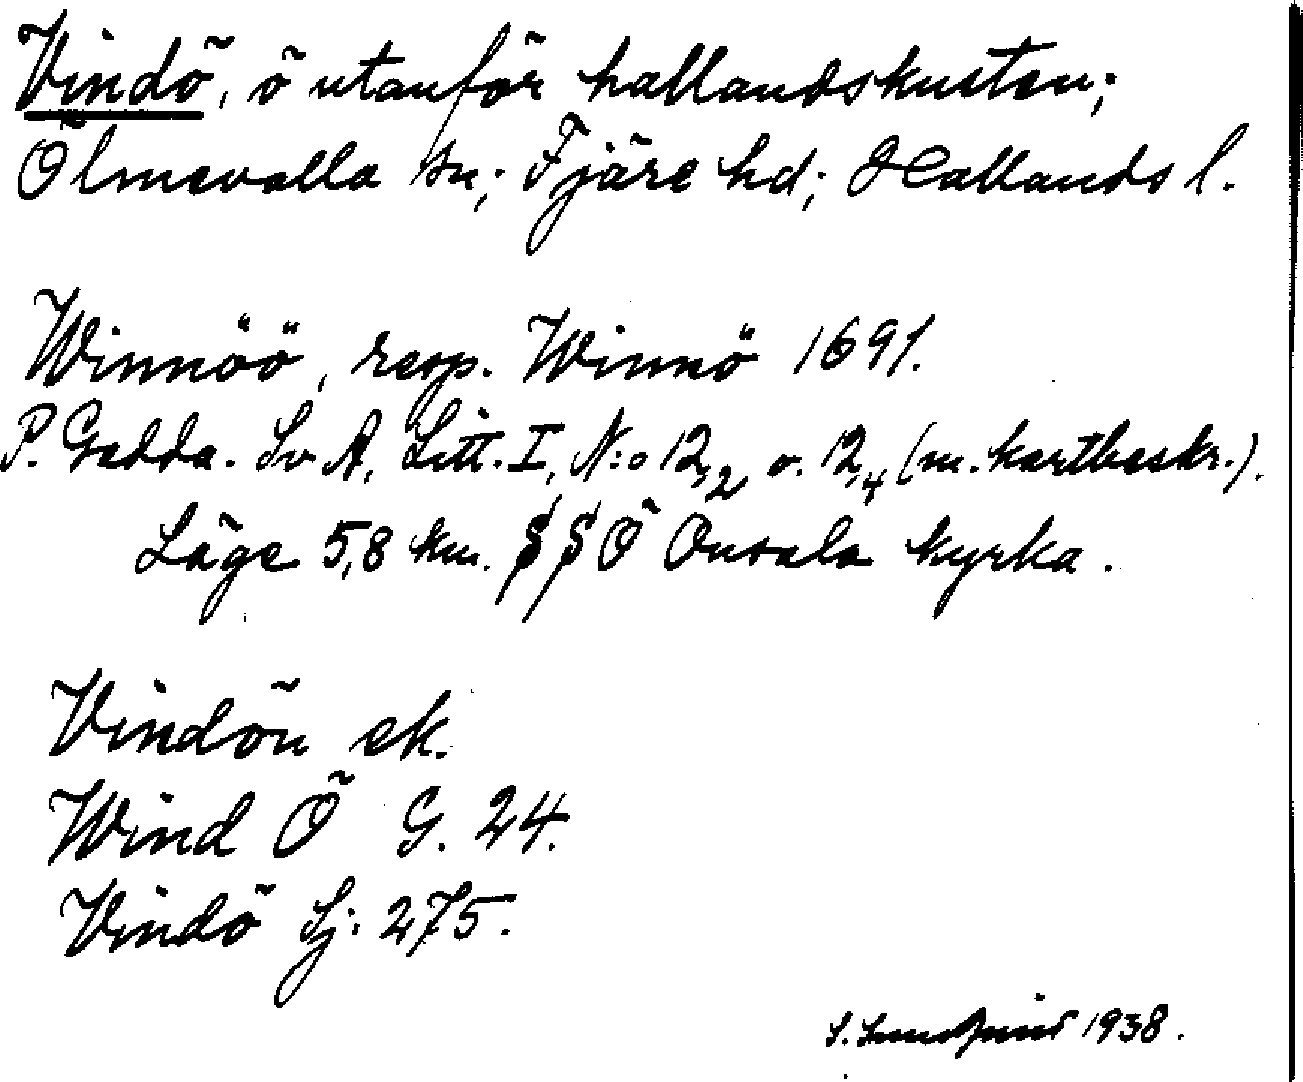 Vindö, ö utanför hallandskusten;
Ölmevalla sn; Fjäre hd; Hallands l.
Winnöö, resp. Winnö 1691.
P. Gedda. Sv A, Litt. I, N:o 12,2 o. 12,4 (m. kartbeskr.).
Läge 5,8 km. S S Ö Onsala kyrka.
Vindön ek.
Wind Ö G. 24.
Vindö Sj. 275.
S. 1938.